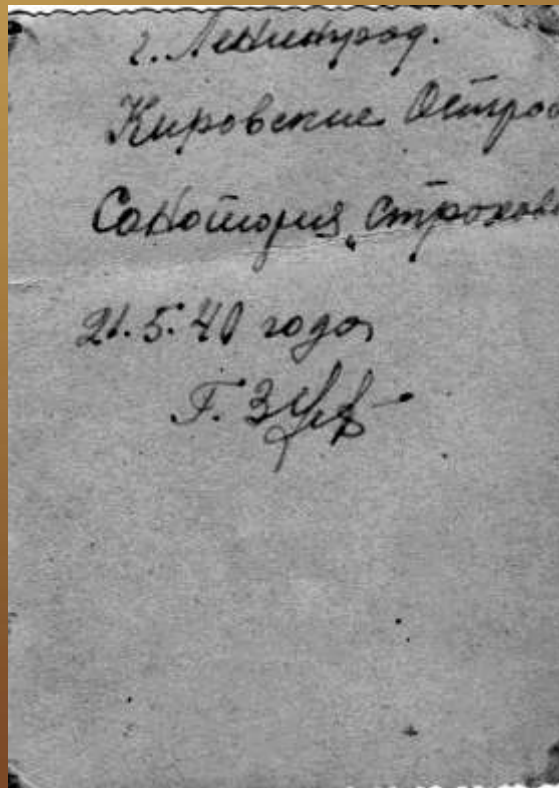 г. Ленинград.
Кировские Остров
Санатория „Строхов
21.5.40 года
Г. З